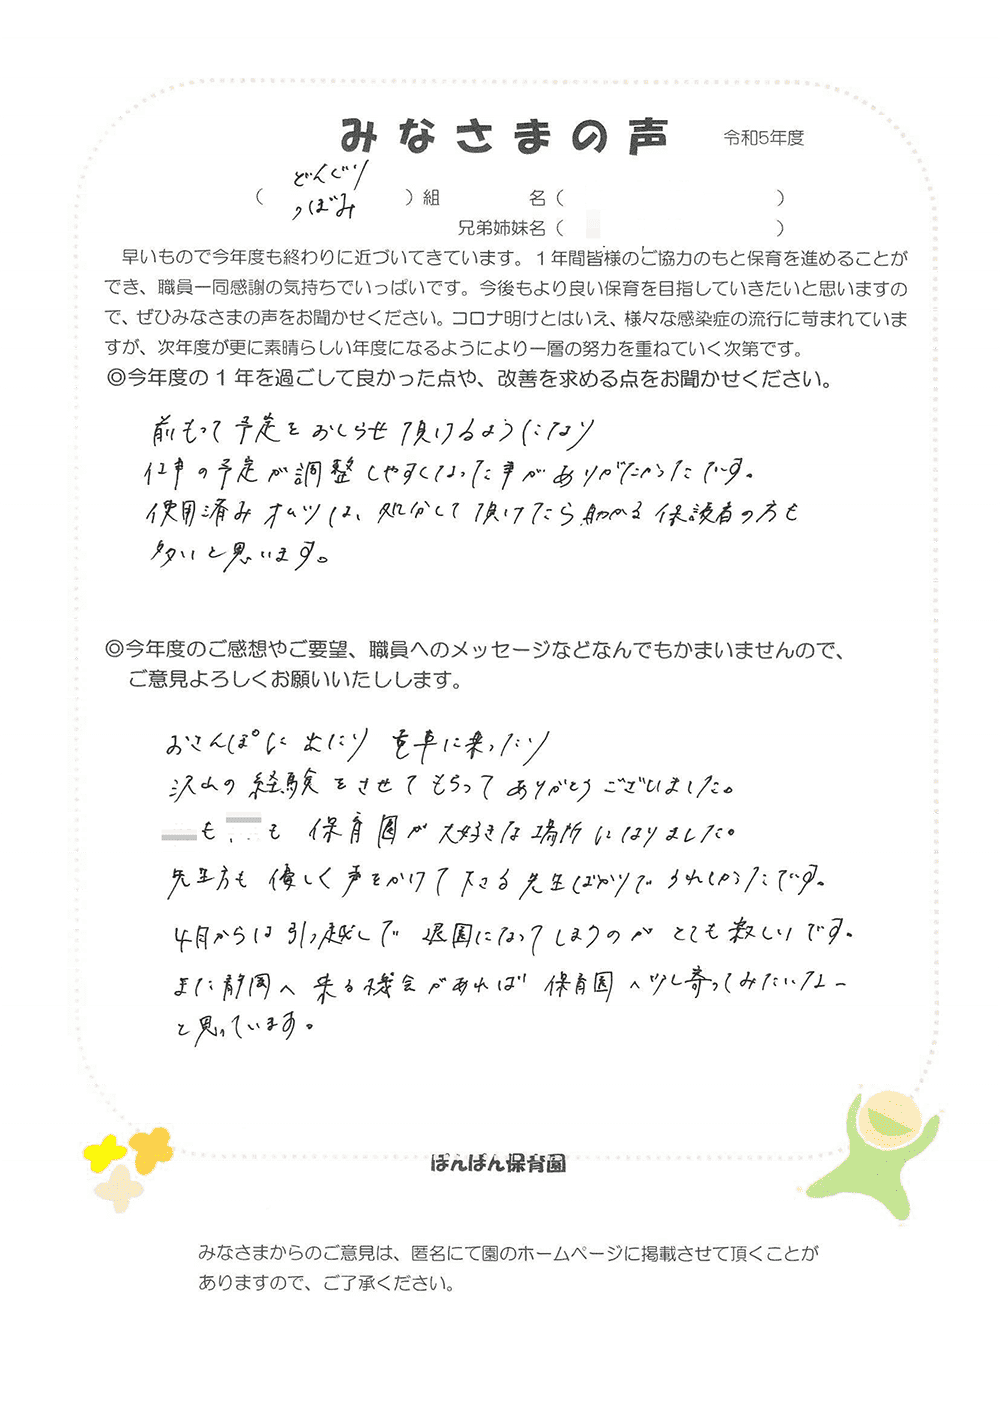 みなさまの声 令和5年度
どんぐり
（ つぼみ ）組 名（ ）
兄弟姉妹名（ ）
早いもので今年度も終わりに近づいてきています。１年間皆様のご協力のもと保育を進めることが
でき、職員一同感謝の気持ちでいっぱいです。今後もより良い保育を目指していきたいと思いますの
で、ぜひみなさまの声をお聞かせください。コロナ明けとはいえ、様々な感染症の流行に苛まれていま
すが、次年度が更に素晴らしい年度になるようにより一層の努力を重ねていく次第です。
◎今年度の１年を過ごして良かった点や、改善を求める点をお聞かせください。
前もって予定をおしらせ頂けるようになり
仕事の予定が調整しやすくなった事がありがたかったです。
使用済みオムツは、処分して頂けたら助かる保護者の方も
多いと思います。
◎今年度のご感想やご要望、職員へのメッセージなどなんでもかまいませんので、
ご意見よろしくお願いいたしします。
おさんぽに出たり 電車に乗ったり
沢山の経験をさせてもらってありがとうございました。
も も 保育園が大好きな場所になりました。
先生方も優しく声をかけて下さる先生ばかりでうれしかったです。
4月からは引っ越しで 退園になってしまうのがとても寂しいです。
また静岡へ来る機会があれば 保育園へ少し寄ってみたいなー
と思っています。
ぽんぽん保育園
みなさまからのご意見は、匿名にて園のホームページに掲載させて頂くことが
ありますので、ご了承ください。